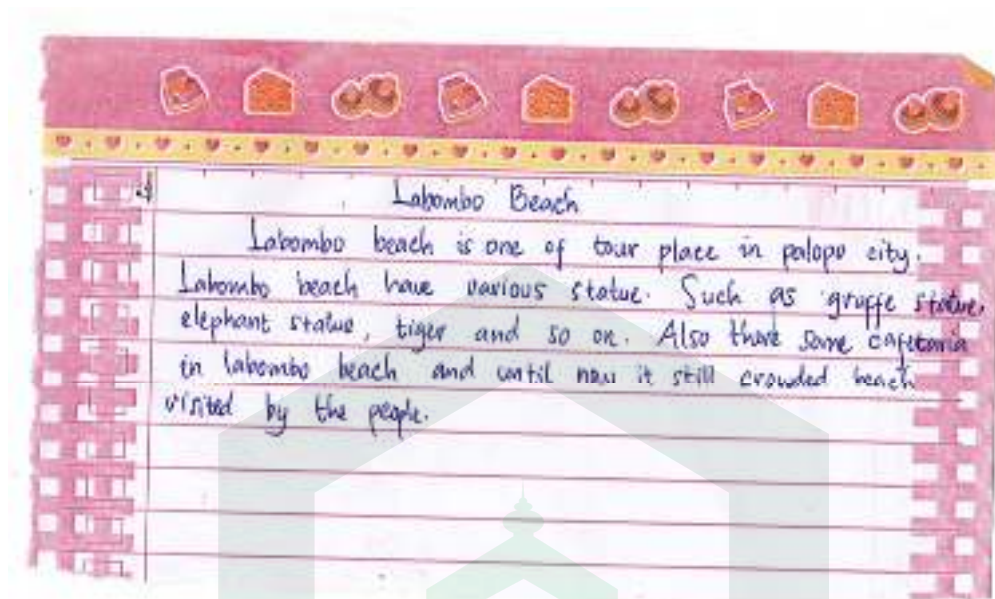 Labombo Beach
Labombo beach is one of tour place in palopo city.
Labombo beach have various statue. Such as gruffe statue,
elephant statue, tiger and so on. Also there some cafetaria
in labombo beach and until now it still crowded beach
visited by the people.